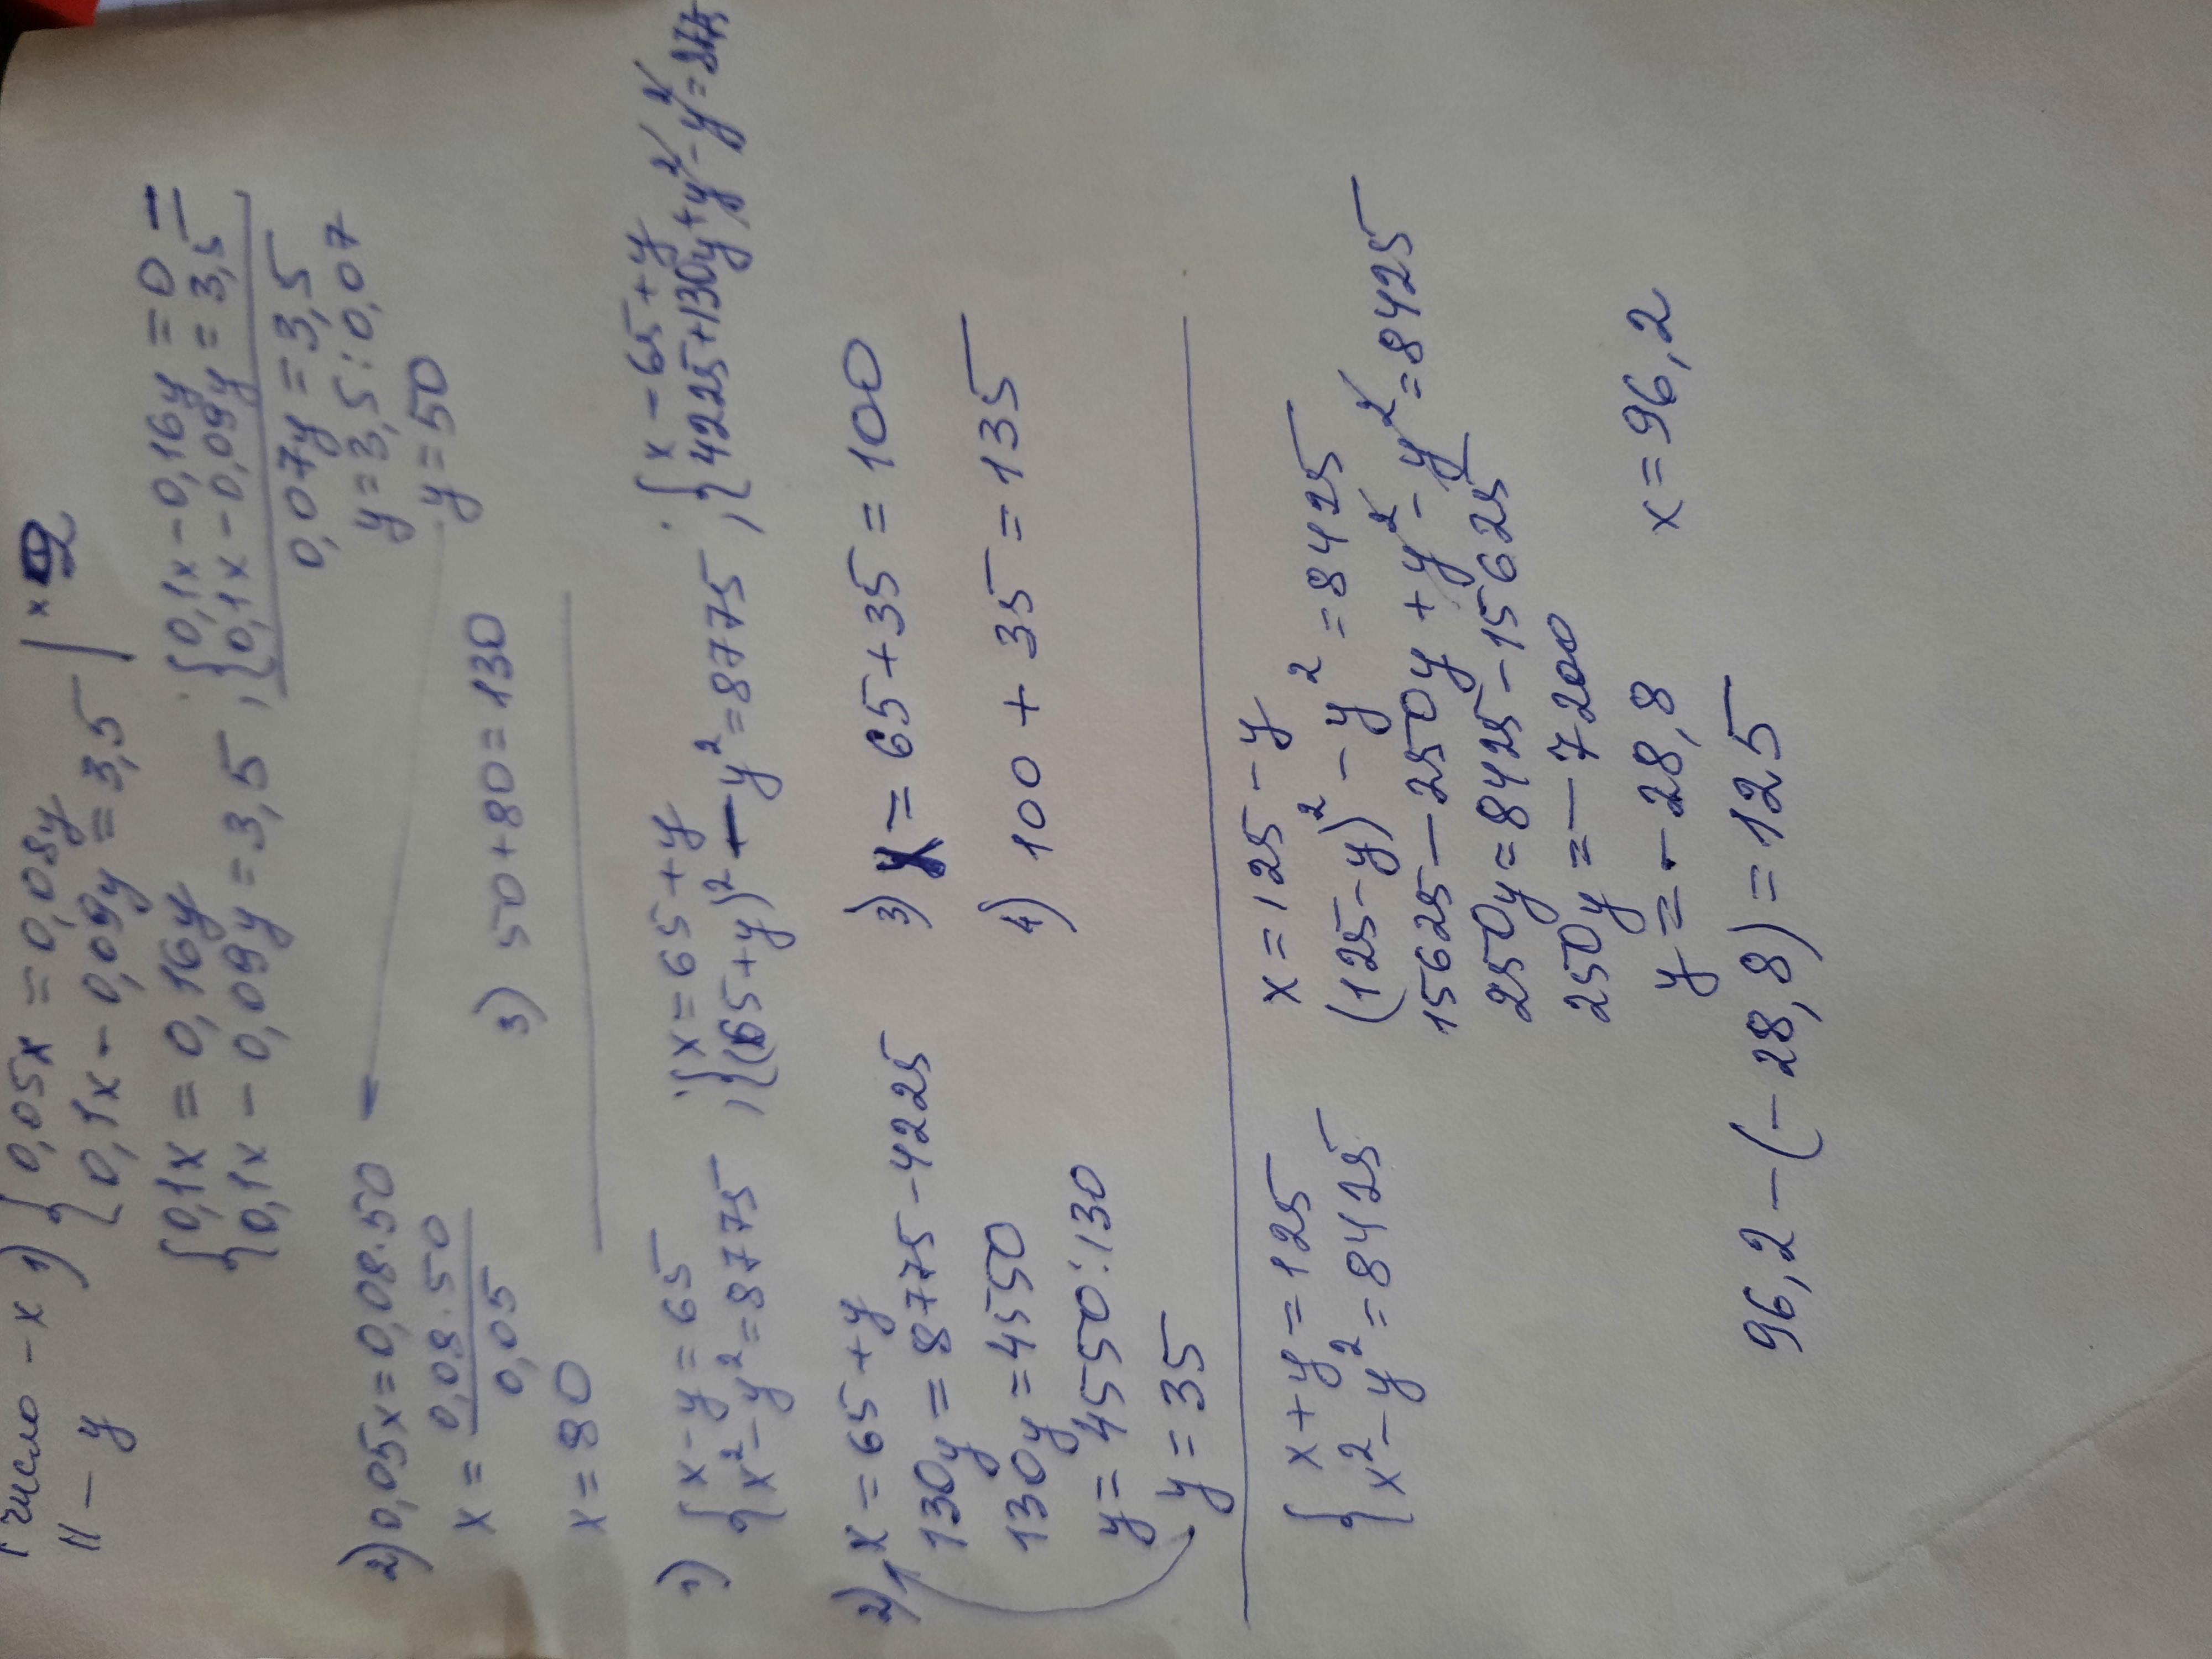 число – x 1) { 0,05x = 0,08y
0,1x – 0,09y = 3,5 | ×
" – y
{ 0,1x = 0,16y
0,1x – 0,09y = 3,5 ; { 0,1x – 0,16y = 0
0,1x – 0,09y = 3,5
0,07y = 3,5
y = 3,5 : 0,07
y = 50
2) 0,05x = 0,08·50
x = 0,08·50 / 0,05
x = 80
3) 50 + 80 = 130
1) { x – y = 65
x² – y² = 8775 ; { x = 65 + y
(65+y)² – y² = 8775 ; { x – 65 + y
4225 + 130y + y² – y² =
2) x = 65 + y
130y = 8775 – 4225
130y = 4550
y = 4550 : 130
y = 35
3) x = 65 + 35 = 100
4) 100 + 35 = 135
{ x + y = 125
x² – y² = 8425
x = 125 – y
(125 – y)² – y² = 8425
15625 – 250y + y² – y² = 8425
250y = 8425 – 15625
250y = – 7200
y = – 28,8
x = 96,2
96,2 – (– 28,8) = 125